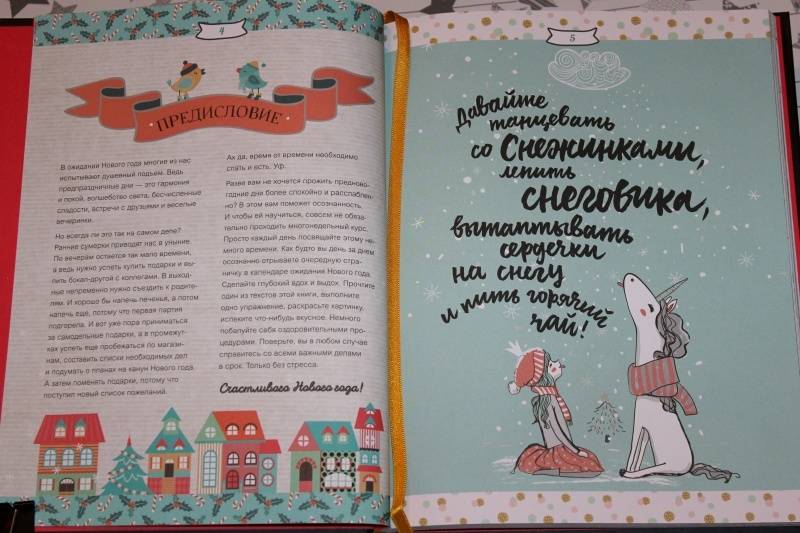 4
ПРЕДИСЛОВИЕ
В ожидании Нового года многие из нас
испытывают душевный подъем. Ведь
предпраздничные дни — это гармония
и покой, волшебство света, бесчисленные
сладости, встречи с друзьями и веселые
вечеринки.
Но всегда ли это так на самом деле?
Ранние сумерки приводят нас в уныние.
По вечерам остается так мало времени,
а ведь нужно успеть купить подарки и вы-
пить бокал-другой с коллегами. В выход-
ные непременно нужно съездить к родите-
лям. И хорошо бы напечь печенья, а потом
напечь еще, потому что первая партия
подгорела. И вот уже пора приниматься
за самодельные подарки, а в промежут-
ках успеть еще пробежаться по магази-
нам, составить списки необходимых дел
и подумать о планах на канун Нового года.
А затем поменять подарки, потому что
поступил новый список пожеланий.
Ах да, время от времени необходимо
спать и есть. Уф.
Разве вам не хочется прожить предново-
годние дни более спокойно и расслаблен-
но? В этом вам поможет осознанность.
И чтобы ей научиться, совсем не обяза-
тельно проходить многонедельный курс.
Просто каждый день посвящайте этому не-
много времени. Как будто вы день за днем
осознанно отрываете очередную стра-
ничку в календаре ожидания Нового года.
Сделайте глубокий вдох и выдох. Прочтите
один из текстов этой книги, выполните
одно упражнение, раскрасьте картинку,
испеките что-нибудь вкусное. Немного
побалуйте себя оздоровительными про-
цедурами. Поверьте, вы в любом случае
справитесь со всеми важными делами
в срок. Только без стресса.
Счастливого Нового года!
5
Давайте
танцевать
со Снежинками,
лепить
снеговика,
вытаптывать
сердечки
на снегу
и пить горячий
чай!